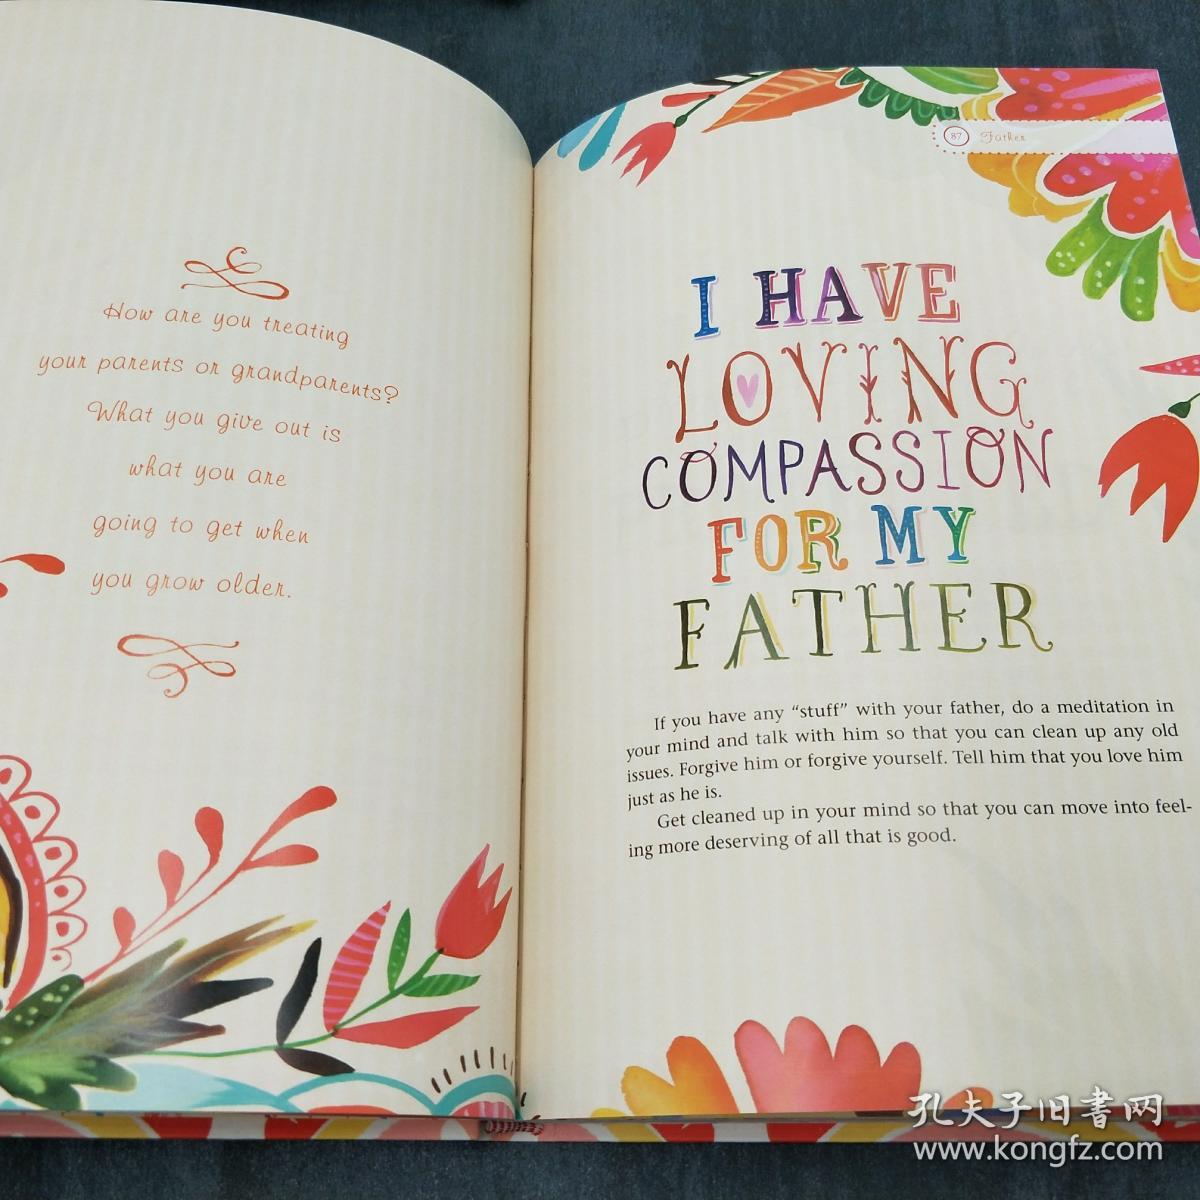 How are you treating
your parents or grandparents?
What you give out is
what you are
going to get when
you grow older.
87 Father
I HAVE
LOVING
COMPASSION
FOR MY
FATHER
If you have any “stuff” with your father, do a meditation in
your mind and talk with him so that you can clean up any old
issues. Forgive him or forgive yourself. Tell him that you love him
just as he is.
Get cleaned up in your mind so that you can move into feel-
ing more deserving of all that is good.
孔夫子旧書网
www.kongfz.com